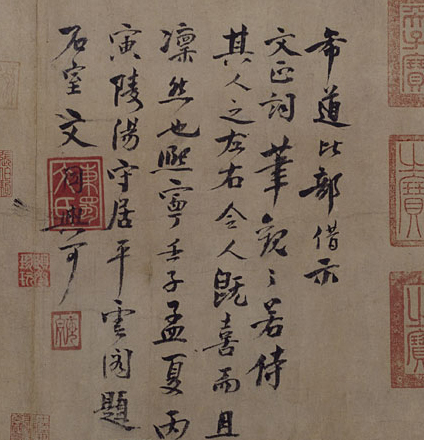 希道比部借示
文正詞筆觀之若侍
其人之左右令人既喜而且
凜然也熙寧壬子孟夏丙
寅陵陽守居平雲閣題
石室文同與可
東蜀文氏